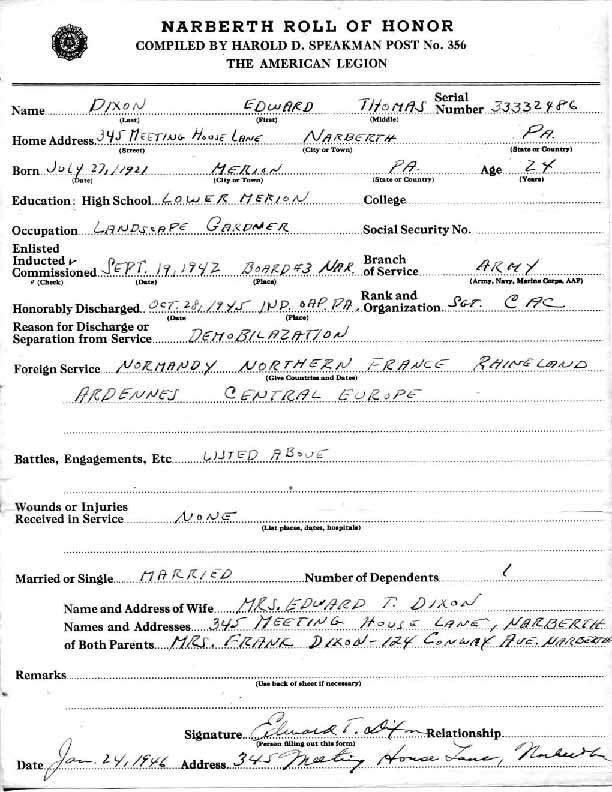 NARBERTH ROLL OF HONOR
COMPILED BY HAROLD D. SPEAKMAN POST No. 356
THE AMERICAN LEGION
Name DIXON EDWARD THOMAS Serial Number 33332486
(Last) (First) (Middle)
Home Address 345 MEETING HOUSE LANE NARBERTH PA.
(Street) (City or Town) (State or Country)
Born JULY 27, 1921 MERION PA. Age 24
(Date) (City or Town) (State or Country) (Years)
Education: High School LOWER MERION College
Occupation LANDSCAPE GARDNER Social Security No.
Enlisted
Inducted ✓ Branch
Commissioned SEPT. 19, 1942 BOARD #3 NAR. of Service ARMY
(Check) (Date) (Place) (Army, Navy, Marine Corps, AAF)
Honorably Discharged OCT. 28, 1945 IND. GAP, PA. Rank and Organization SGT. CAC
(Date (Place)
Reason for Discharge or
Separation from Service DEMOBILAZATION
Foreign Service NORMANDY NORTHERN FRANCE RHINELAND
(Give Countries and Dates)
ARDENNES CENTRAL EUROPE
Battles, Engagements, Etc LISTED ABOVE
Wounds or Injuries
Received in Service NONE
(List places, dates, hospitals)
Married or Single MARRIED Number of Dependents 1
Name and Address of Wife MRS. EDWARD T. DIXON
Names and Addresses 345 MEETING HOUSE LANE, NARBERTH
of Both Parents MRS. FRANK DIXON - 124 CONWAY AVE. NARBERTH
Remarks
(Use back of sheet if necessary)
Signature Edward T. Dixon Relationship
(Person filling out this form)
Date Jan. 24, 1946 Address 345 Meeting House Lane, Narberth